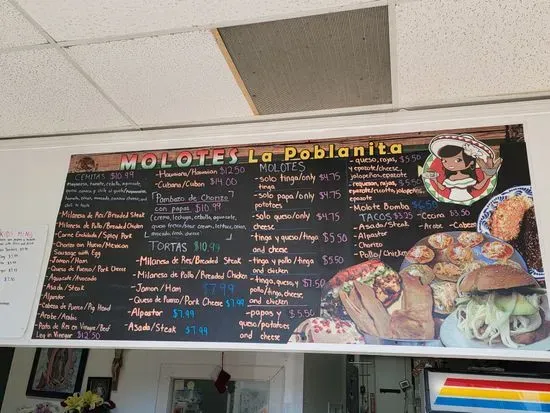 MOLOTES La Poblanita
CEMITAS $10.99
- Milanesa de Res/Breaded Steak
- Milanesa de Pollo/Breaded Chicken
- Carne Enchilada/Spicy Pork
- Chorizo con Huevo/Mexican
Sausage with Egg
- Jamon/Ham
- Queso de Puerco/Pork Cheese
- Aguacate/Avocado
- Asada/Steak
- Alpastor
- Cabeza de Puerco/Pig Head
- Arabe/Arabe
- Pata de Res en Vinagre/Beef
Leg in Vinegar $12.50
- Hawaiiana/Hawaiian $12.50
- Cubana/Cuban $14.00
Pambazo de Chorizo
con papas $10.99
TORTAS $10.99
- Milanesa de Res/Breaded Steak
- Milanesa de Pollo/Breaded Chicken
- Jamon/Ham $7.99
- Queso de Puerco/Pork Cheese $7.99
- Alpastor $7.99
- Asada/Steak $7.99
MOLOTES
- solo tinga/only $4.75
tinga
- solo papa/only $4.75
potatoes
- solo queso/only $4.75
cheese
- queso y tinga/tinga $5.50
and cheese
- tinga y pollo/tinga $5.50
and chicken
- tinga, queso y $7.50
pollo/tinga, cheese,
and chicken
- papas y $5.50
queso/potatoes
and cheese
- queso, rajas, $5.50
y epazote/cheese,
jalapeño, epazote
- requeson, rajas, $5.50
- Molote Bomba $6.50
TACOS $3.25
- Asada/Steak
- Alpastor
- Chorizo
- Pollo/Chicken
- Cecina $3.50
- Arabe
- Cabeza